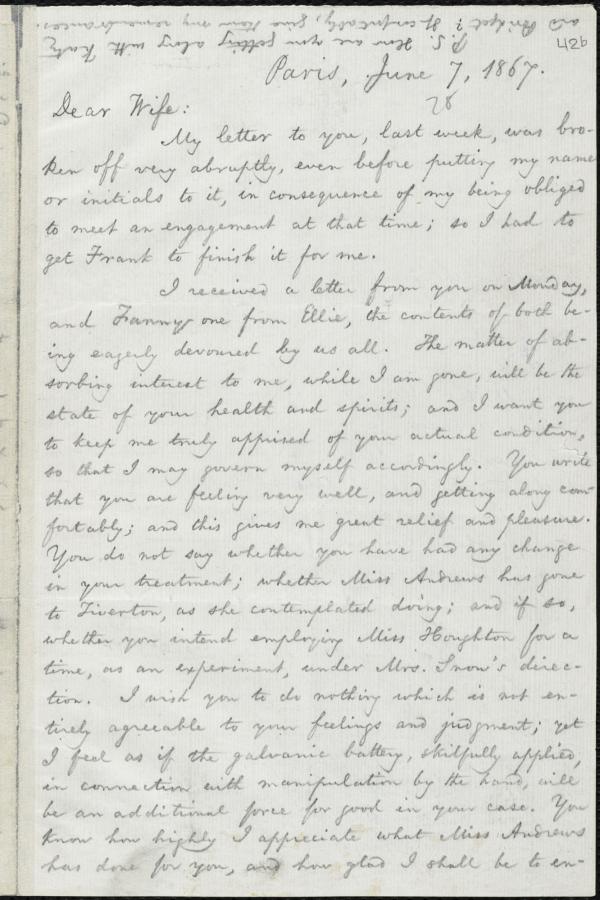 P.S. How are you getting along with Katy
and Bridget? If comfortably, give them my remembrances.
426
Paris, June 7, 1867.
28
Dear Wife:
My letter to you, last week, was bro-
ken off very abruptly, even before putting my name
or initials to it, in consequence of my being obliged
to meet an engagement at that time; so I had to
get Frank to finish it for me.
I received a letter from you on Monday,
and Fanny one from Ellie, the contents of both be-
ing eagerly devoured by us all. The matter of ab-
sorbing interest to me, while I am gone, will be the
state of your health and spirits; and I want you
to keep me truly apprised of your actual condition,
so that I may govern myself accordingly. You write
that you are feeling very well, and getting along com-
fortably; and this gives me great relief and pleasure.
You do not say whether you have had any change
in your treatment; whether Miss Andrews has gone
to Tiverton, as she contemplated doing; and if so,
whether you intend employing Miss Houghton for a
time, as an experiment, under Mrs. Snow's direc-
tion. I wish you to do nothing which is not en-
tirely agreeable to your feelings and judgment; yet
I feel as if the galvanic battery, skilfully applied,
in connection with manipulation by the hand, will
be an additional force for good in your case. You
know how highly I appreciate what Miss Andrews
has done for you, and how glad I shall be to en-